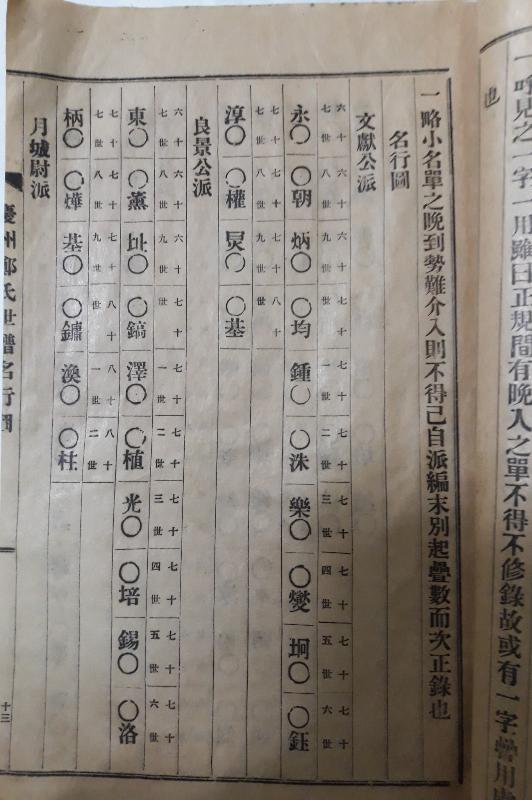 之一字一用雖曰正規間有晚入之單不得不修錄故或有一字疊用
也
一略小名單之晚到勢難介入則不得已自派編末別起疊數而次正錄也
名行圖
文獻公派
六十七世 六十八世 六十九世 七十世 七十一世 七十二世 七十三世 七十四世 七十五世 七十六世
永○ ○朝 炳○ ○均 鍾○ ○洙 樂○ ○燮 坰○ ○鈺
七十七世 七十八世 七十九世 八十世
淳○ ○權 炅○ ○基
良景公派
六十七世 六十八世 六十九世 七十世 七十一世 七十二世 七十三世 七十四世 七十五世 七十六世
東○ ○薰 址○ ○鎬 澤○ ○植 光○ ○培 錫○ ○洛
七十七世 七十八世 七十九世 八十世 八十一世 八十二世
柄○ ○燁 基○ ○鏞 渙○ ○柱
月城尉派
慶州鄭氏世譜名行圖
十三